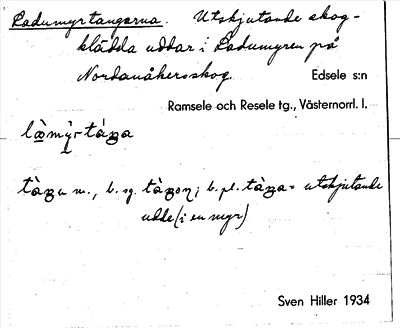 Ladumyrtangarna. Utskjutande skog-
klädda uddar i Ladumyren på
Nordanåkersskog.
Edsele s:n
Ramsele och Resele tg., Västernorrl. l.
m., b. sg. b. pl. = utskjutande
udde (i en myr)
Sven Hiller 1934